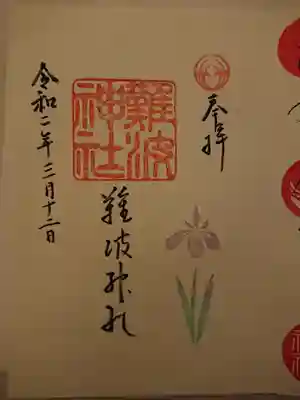 奉拝
難波神社
難波神社
令和二年三月十二日